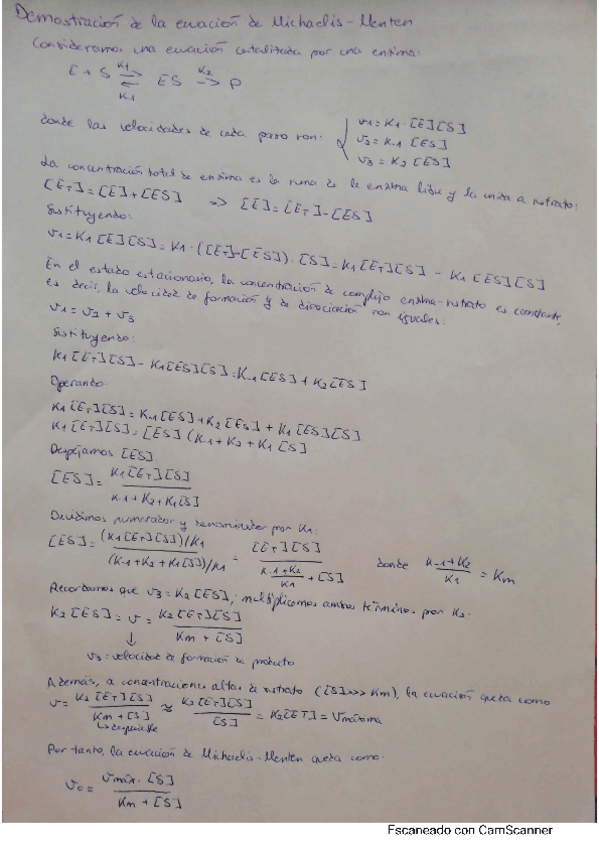 Demostración de la ecuación de Michaelis-Menten
Consideramos una ecuación catalitada por una enzima:
E + S ⇌ ES → P
K1 K-1 K2
donde las velocidades de cada paso son:
v1 = K1 · [E][S]
v2 = K-1 [ES]
v3 = K2 [ES]
La concentración total de enzima es la suma de la enzima libre y la unida a sustrato:
[ET] = [E] + [ES] => [E] = [ET] - [ES]
Sustituyendo:
v1 = K1 [E][S] = K1 · ([ET]-[ES]) · [S] = K1 [ET][S] - K1 [ES][S]
En el estado estacionario, la concentración de complejo enzima-sustrato es constante,
es decir, la velocidad de formación y de disociación son iguales:
v1 = v2 + v3
Sustituyendo:
K1 [ET][S] - K1 [ES][S] = K-1 [ES] + K2 [ES]
Operando:
K1 [ET][S] = K-1 [ES] + K2 [ES] + K1 [ES][S]
K1 [ET][S] = [ES] (K-1 + K2 + K1 [S]
Despejamos [ES]
[ES] = K1 [ET][S] / K-1 + K2 + K1[S]
Dividimos numerador y denominador por K1:
[ES] = (K1 [ET][S])/K1 / (K-1 + K2 + K1 [S])/K1 = [ET][S] / K-1 + K2 / K1 + [S] donde K-1 + K2 / K1 = Km
Recordamos que v3 = K2 [ES]; multiplicamos ambos términos por K2:
K2 [ES] = v = K2 [ET][S] / Km + [S]
↓
v3 = velocidad de formación de producto
Además, a concentraciones altas de sustrato ([S] >>> Km), la ecuación queda como
v = K2 [ET][S] / Km + [S] ≈ K2 [ET][S] / [S] = K2 [ET] = Vmáxima
↳ despreciable
Por tanto, la ecuación de Michaelis-Menten queda como:
v0 = Vmáx · [S] / Km + [S]
Escaneado con CamScanner